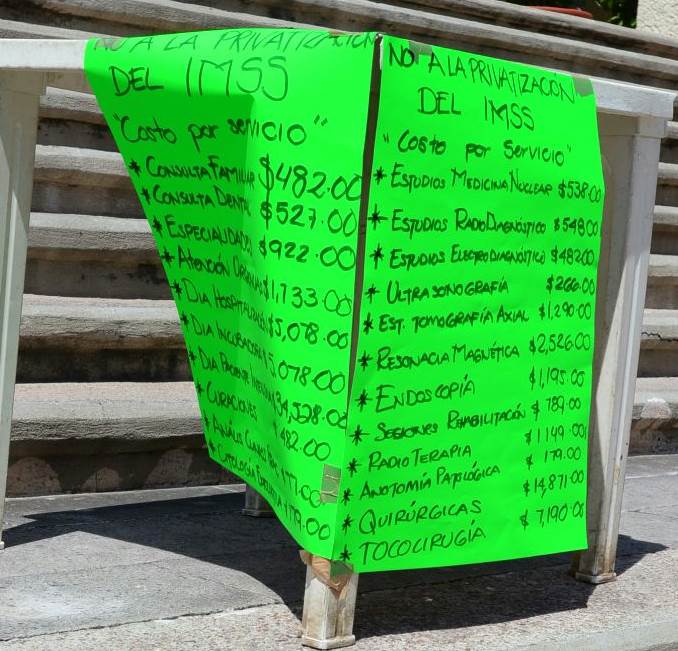 NO A LA PRIVATIZACIÓN
DEL IMSS
"Costo por servicio"
* CONSULTA FAMILIAR $482.00
* CONSULTA DENTAL $527.00
* ESPECIALIDADES $922.00
* ATENCIÓN $1,733.00
* DIA HOSPITALIZACIÓN $5,078.00
* DIA INCUBADORA $5,078.00
* DIA 34,528.00
* CURACIONES 482.00
* 177.00
* CITOLOGÍA 179.00
NO A LA PRIVATIZACIÓN
DEL IMSS
"Costo por Servicio"
* ESTUDIOS MEDICINA NUCLEAR $538.00
* ESTUDIOS RADIODIAGNÓSTICO $548.00
* ESTUDIOS ELECTRODIAGNÓSTICO $482.00
* ULTRASONOGRAFÍA $266.00
* EST. TOMOGRAFÍA AXIAL $1,290.00
* RESONACIA MAGNÉTICA $2,526.00
* ENDOSCOPÍA $1,195.00
* SESIONES REHABILITACIÓN $789.00
* RADIOTERAPIA $1149.00
* ANOTOMÍA PATOLÓGICA $179.00
* QUIRÚRGICAS $14,871.00
* TOCOCIRUGÍA $7,190.00